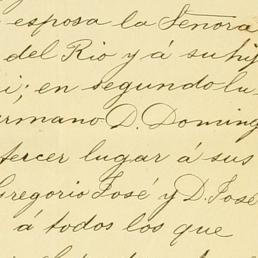 esposa la Señora
del Rio y á su hij
i; en segundo lu-
ermano D. Doming
tercer lugar á sus
Gregorio José y D. José
á todos los que